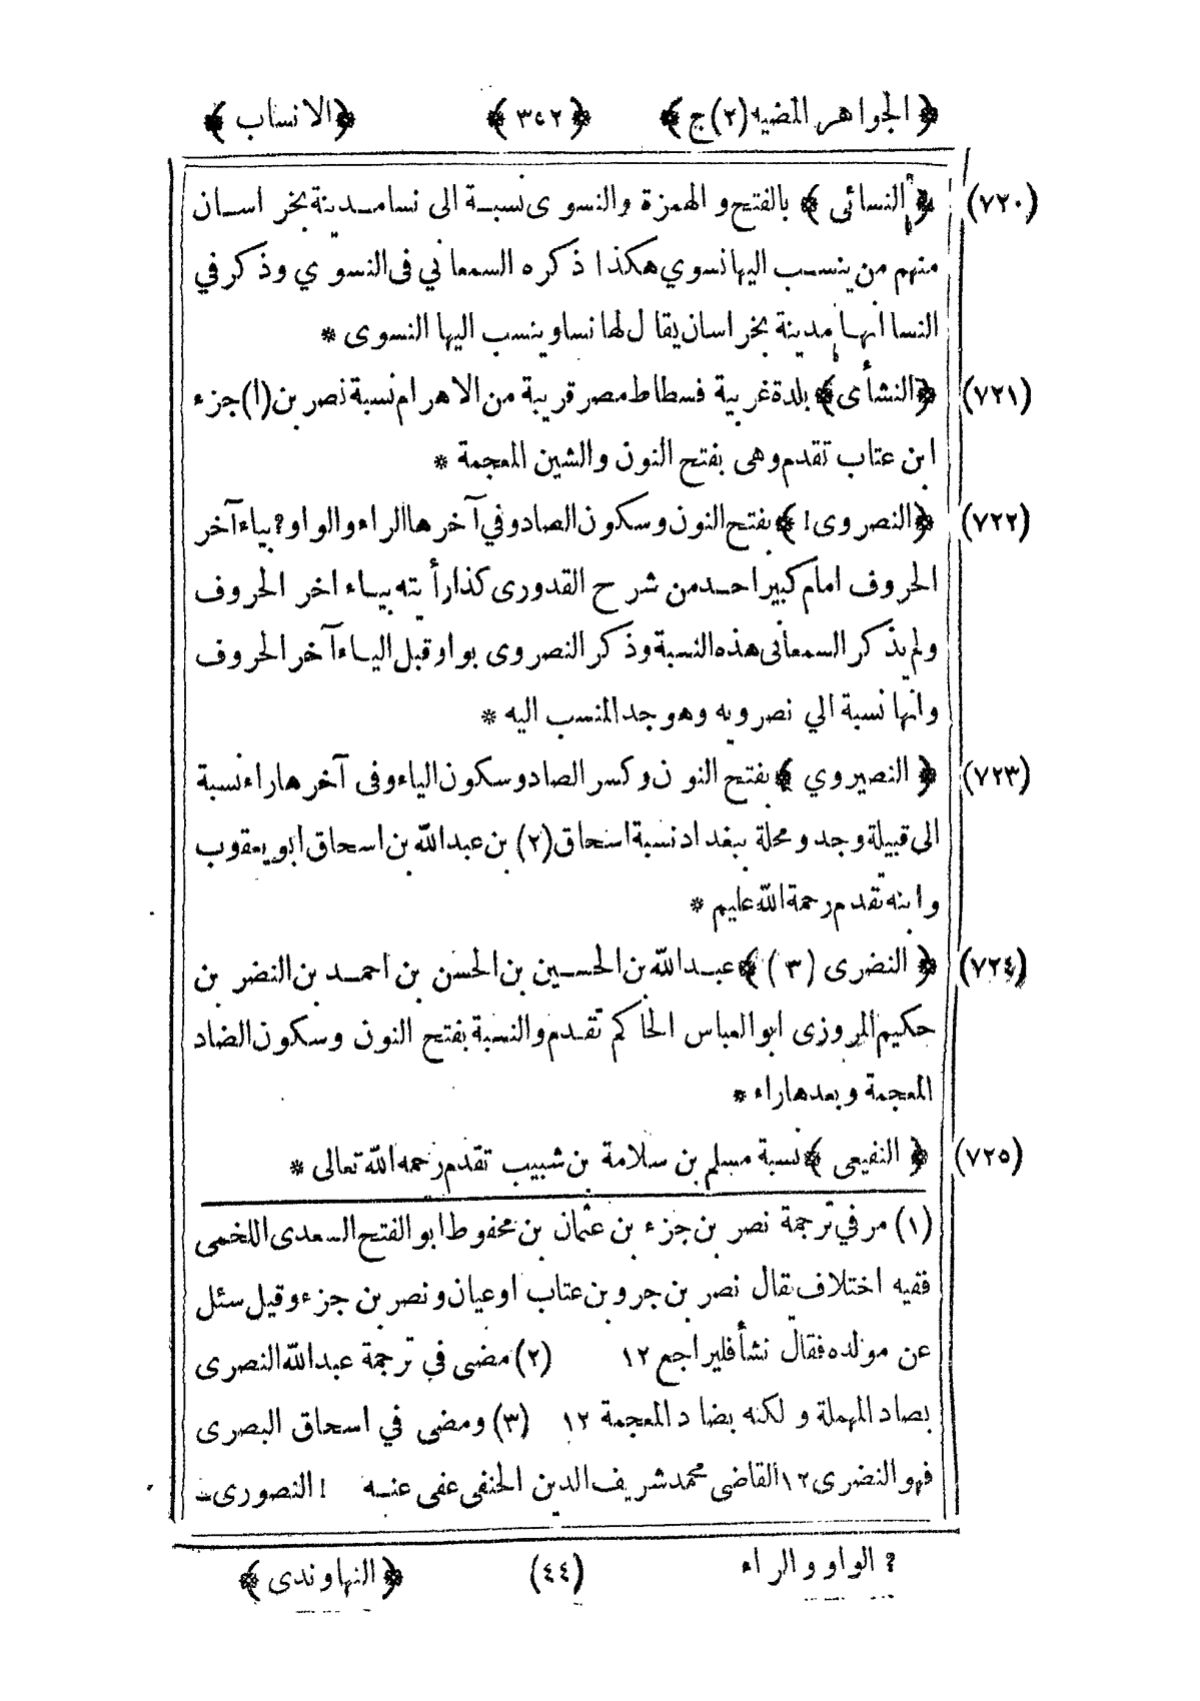 ﴿الجواهر المضيه(٢)ج﴾ ﴿٣٥٢﴾ ﴿الانساب﴾
(٧٢٠) ﴿النسائى﴾ بالفتح و الهمزة والنسوى نسبة الى نسا مدينة بخراسان
منهم من ينسب اليها نسوي هكذا ذكره السمعاني فى النسوي وذكر في
النسا انها مدينة بخراسان يقال لها نسا وينسب اليها النسوى *
(٧٢١) ﴿النشأى﴾ بلدة غربية فسطاط مصر قريبة من الاهرام نسبة نصر بن(ا)جزء
ابن عتاب تقدم وهى بفتح النون والشين المعجمة *
(٧٢٢) ﴿النصروى!﴾ بفتح النون وسكون الصاد وفي آخرها الراء والواو? بياء آخر
الحروف امام كبير احد من شرح القدورى كذا رأيته بياء اخر الحروف
ولم يذكر السمعانى هذه النسبة وذكر النصروى بواو قبل الياء آخر الحروف
وانها نسبة الي نصرويه وهو جد المنسب اليه *
(٧٢٣) ﴿النصيروي﴾ بفتح النون وكسر الصاد وسكون الياء وفى آخرها راء نسبة
الى قبيلة وجد ومحلة ببغداد نسبة اسحاق(٢) بن عبدالله بن اسحاق ابو يعقوب
وابنه تقدم رحمة الله عليهم *
(٧٢٤) ﴿النضرى (٣)﴾ عبدالله بن الحسين بن الحسن بن احمد بن النضر بن
حكيم المروزى ابو العباس الحاكم تقدم والنسبة بفتح النون وسكون الضاد
المعجمة وبعدها راء *
(٧٢٥) ﴿النفيعى﴾ نسبة مسلم بن سلامة بن شبيب تقدم رحمه الله تعالى *
(١) مر في ترجمة نصر بن جزء بن عثمان بن محفوظ ابو الفتح السعدى اللخمى
فقيه اختلاف يقال نصر بن جرو بن عتاب او عيان ونصر بن جزء وقيل سئل
عن مولده فقال نشأ فليراجع ١٢ (٢) مضى في ترجمة عبدالله النصرى
بصاد المهملة و لكنه بضاد المعجمة ١٢ (٣) ومضى في اسحاق البصرى
فهو النضرى ١٢ القاضى محمد شريف الدين الحنفى عفى عنه ! النصورى
? الواو والراء (٤٤) ﴿النهاوندى﴾